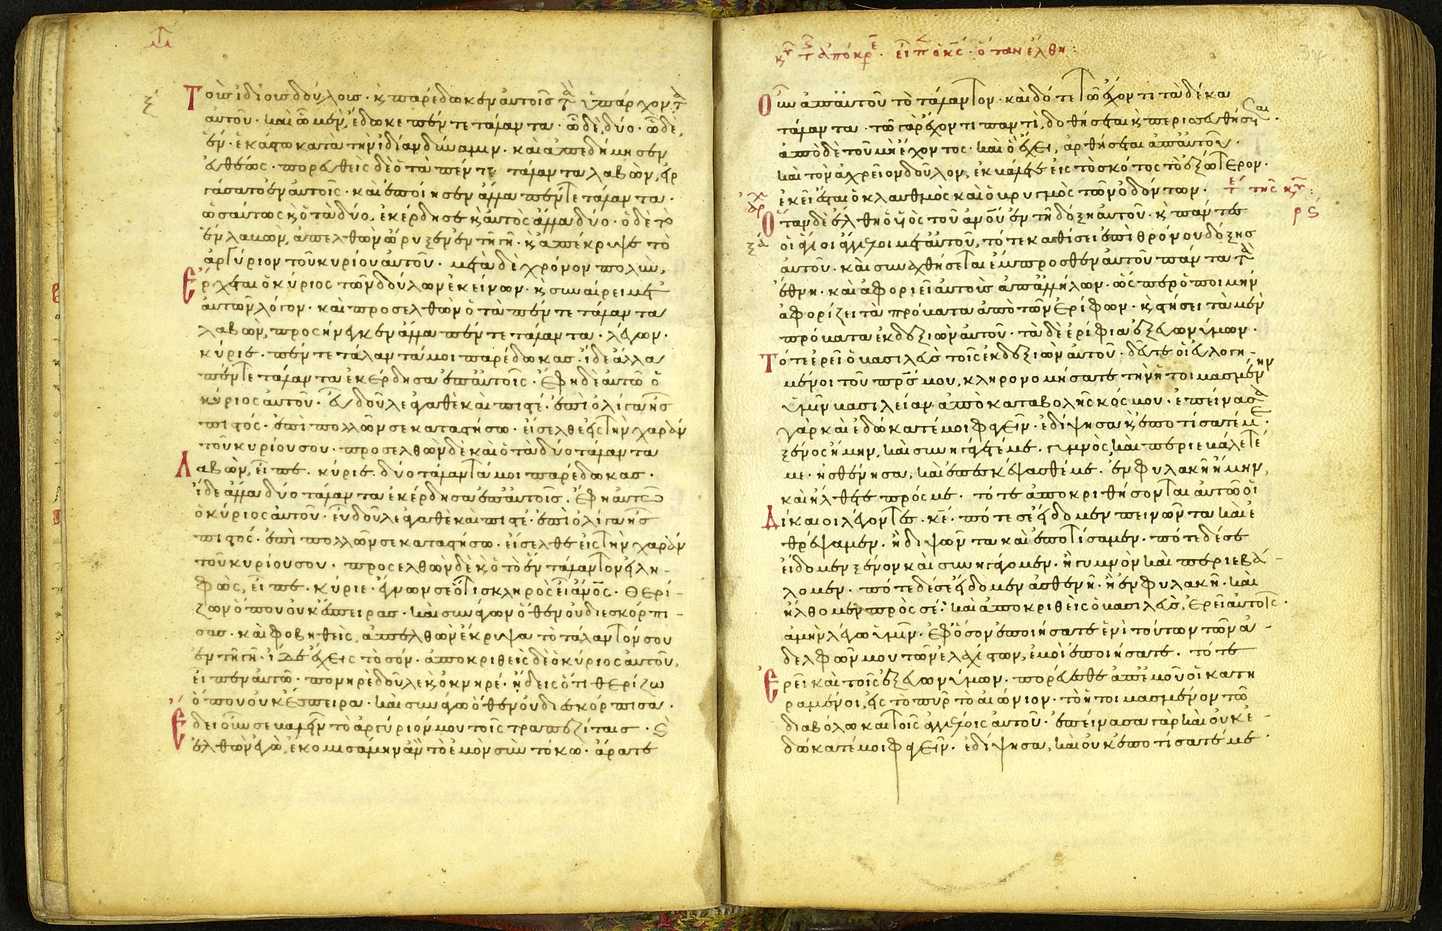 ξ
Τοῖς ἰδίοις δούλοις · κ παρέδωκεν αὐτοῖς τὰ ὑπάρχοντα
αὐτοῦ · καὶ ᾧ μὲν, ἔδωκε πέντε τάλαντα · ᾧ δὲ, δύο · ᾧ δὲ,
ἕν · ἑκάστω κατὰ τὴν ἰδίαν δύναμιν · καὶ ἀπεδήμησεν
εὐθέως · πορευθεὶς δὲ ὁ τὰ πέντε τάλαντα λαβὼν, εἰρ
γάσατο ἐν αὐτοῖς · καὶ ἐποίησεν ἄλλα πέντε τάλαντα ·
ὡσαύτως κ ὁ τὰ δύο, ἐκέρδησε κ αὐτὸς ἄλλα δύο · ὁ δὲ τὸ
ἓν λαβὼν, ἀπελθὼν ὤρυξεν ἐν τῇ γῇ · κ ἀπέκρυψε τὸ
ἀργύριον τοῦ κυρίου αὐτοῦ · μετὰ δὲ χρόνον πολὺν,
Ἔρχεται ὁ κύριος τῶν δούλων ἐκείνων · κ συναίρει μετ
αὐτῶν λόγον · καὶ προσελθὼν ὁ τὰ πέντε τάλαντα
λαβὼν, προσήνεγκεν ἄλλα πέντε τάλαντα · λέγων ·
κύριε · πέντε τάλαντά μοι παρέδωκας · ἴδε ἄλλα
πέντε τάλαντα ἐκέρδησα ἐπ αὐτοῖς · ἔφη δὲ αὐτῶ ὁ
κύριος αὐτοῦ · εὖ δοῦλε ἀγαθὲ καὶ πιστέ · ἐπὶ ὀλίγα ἦς
πιστός · ἐπὶ πολλῶν σε καταστήσω · εἴσελθε εἰς τὴν χαρὰν
τοῦ κυρίου σου · προσελθὼν δὲ καὶ ὁ τὰ δύο τάλαντα
Λαβὼν, εἶπε · κύριε · δύο τάλαντά μοι παρέδωκας ·
ἴδε ἄλλα δύο τάλαντα ἐκέρδησα ἐπ αὐτοῖς · ἔφη αὐτῶ
ὁ κύριος αὐτοῦ · εὖ δοῦλε ἀγαθὲ καὶ πιστέ · ἐπὶ ὀλίγα ἦς
πιστός · ἐπὶ πολλῶν σε καταστήσω · εἴσελθε εἰς τὴν χαρὰν
τοῦ κυρίου σου · προσελθὼν δὲ κ ὁ τὸ ἓν τάλαντον εἰλη-
φὼς, εἶπε · κύριε · ἔγνων σε ὅτι σκληρὸς εἶ ἄνος · θερί-
ζων ὅπου οὐκ ἔσπειρας · καὶ συνάγων ὅθεν οὐ διεσκόρπι-
σας · καὶ φοβηθεὶς, ἀπελθὼν ἔκρυψα τὸ τάλαντόν σου
ἐν τῇ γῇ · ἴδε ἔχεις τὸ σόν · ἀποκριθεὶς δὲ ὁ κύριος αὐτοῦ,
εἶπεν αὐτῶ · πονηρὲ δοῦλε κ ὀκνηρέ · ᾔδεις ὅτι θερίζω
ὅπου οὐκ ἔσπειρα · καὶ συνάγω ὅθεν οὐ διεσκόρπισα ·
Ἔδει οὖν σε βαλεῖν τὸ ἀργύριόν μου τοῖς τραπεζίταις · κ
ἐλθὼν ἐγὼ, ἐκομισάμην ἂν τὸ ἐμὸν σὺν τόκω · ἄρατε
εἶπ ὁ κς · ὅταν ἔλθη :
Οὖν ἀπ αὐτοῦ τὸ τάλαντον · καὶ δότε τῶ ἔχοντι τὰ δέκα
τάλαντα · τῶ γὰρ ἔχοντι παντὶ, δοθήσεται κ περισσευθήσεται ·
ἀπὸ δὲ τοῦ μὴ ἔχοντος · καὶ ὃ ἔχει, ἀρθήσεται ἀπ αὐτοῦ ·
καὶ τὸν ἀχρεῖον δοῦλον, ἐκβάλετε εἰς τὸ σκότος τὸ ἐξώτερον ·
ἐκεῖ ἔσται ὁ κλαυθμὸς καὶ ὁ βρυγμὸς τῶν ὀδόντων ·
Ὅταν δὲ ἔλθη ὁ υἱὸς τοῦ ἀνου ἐν τῇ δόξη αὐτοῦ · κ πάντες
οἱ ἅγιοι ἄγγελοι μετ αὐτοῦ, τότε καθίσει ἐπὶ θρόνου δόξης
αὐτοῦ · καὶ συναχθήσεται ἔμπροσθεν αὐτοῦ πάντα τὰ
ἔθνη · καὶ ἀφοριεῖ αὐτοὺς ἀπ ἀλλήλων · ὥσπερ ὁ ποιμὴν
ἀφορίζει τὰ πρόβατα ἀπὸ τῶν ἐρίφων · κ στήσει τὰ μὲν
πρόβατα ἐκ δεξιῶν αὐτοῦ · τὰ δὲ ἐρίφια ἐξ εὐωνύμων ·
Τότε ἐρεῖ ὁ βασιλεὺς τοῖς ἐκ δεξιῶν αὐτοῦ · δεῦτε οἱ εὐλογη-
μένοι τοῦ πρς μου, κληρονομήσατε τὴν ἡτοιμασμένην
ὑμῖν βασιλείαν ἀπὸ καταβολῆς κόσμου · ἐπείνασα
γὰρ καὶ ἐδώκατέ μοι φαγεῖν · ἐδίψησα κ ἐποτίσατέ με ·
ξένος ἤμην, καὶ συνηγάγετέ με · γυμνὸς, καὶ περιεβάλετέ
με · ἠσθένησα, καὶ ἐπεσκέψασθέ με · ἐν φυλακῇ ἤμην,
καὶ ἤλθετε πρός με · τότε ἀποκριθήσονται αὐτῶ οἱ
Δίκαιοι λέγοντες · κε · πότε σὲ εἴδομεν πεινῶντα καὶ ἐ
θρέψαμεν · ἢ διψῶντα καὶ ἐποτίσαμεν · πότε δέ σε
εἴδομεν ξένον καὶ συνηγάγομεν · ἢ γυμνὸν καὶ περιεβά-
λομεν · πότε δέ σε εἴδομεν ἀσθενῆ · ἢ ἐν φυλακῇ · καὶ
ἤλθομεν πρός σέ · καὶ ἀποκριθεὶς ὁ βασιλεὺς, ἐρεῖ αὐτοῖς ·
ἀμὴν λέγω ὑμῖν · ἐφ ὅσον ἐποιήσατε ἑνὶ τούτων τῶν ἀ-
δελφῶν μου τῶν ἐλαχίστων, ἐμοὶ ἐποιήσατε · τότε
Ἐρεῖ καὶ τοῖς ἐξ εὐωνύμων · πορεύεσθε ἀπ ἐμοῦ οἱ κατη
ραμένοι, εἰς τὸ πῦρ τὸ αἰώνιον · τὸ ἡτοιμασμένον τῶ
διαβόλω καὶ τοῖς ἀγγέλοις αὐτοῦ · ἐπείνασα γὰρ καὶ οὐκ ἐ-
δώκατέ μοι φαγεῖν · ἐδίψησα, καὶ οὐκ ἐποτίσατέ με ·